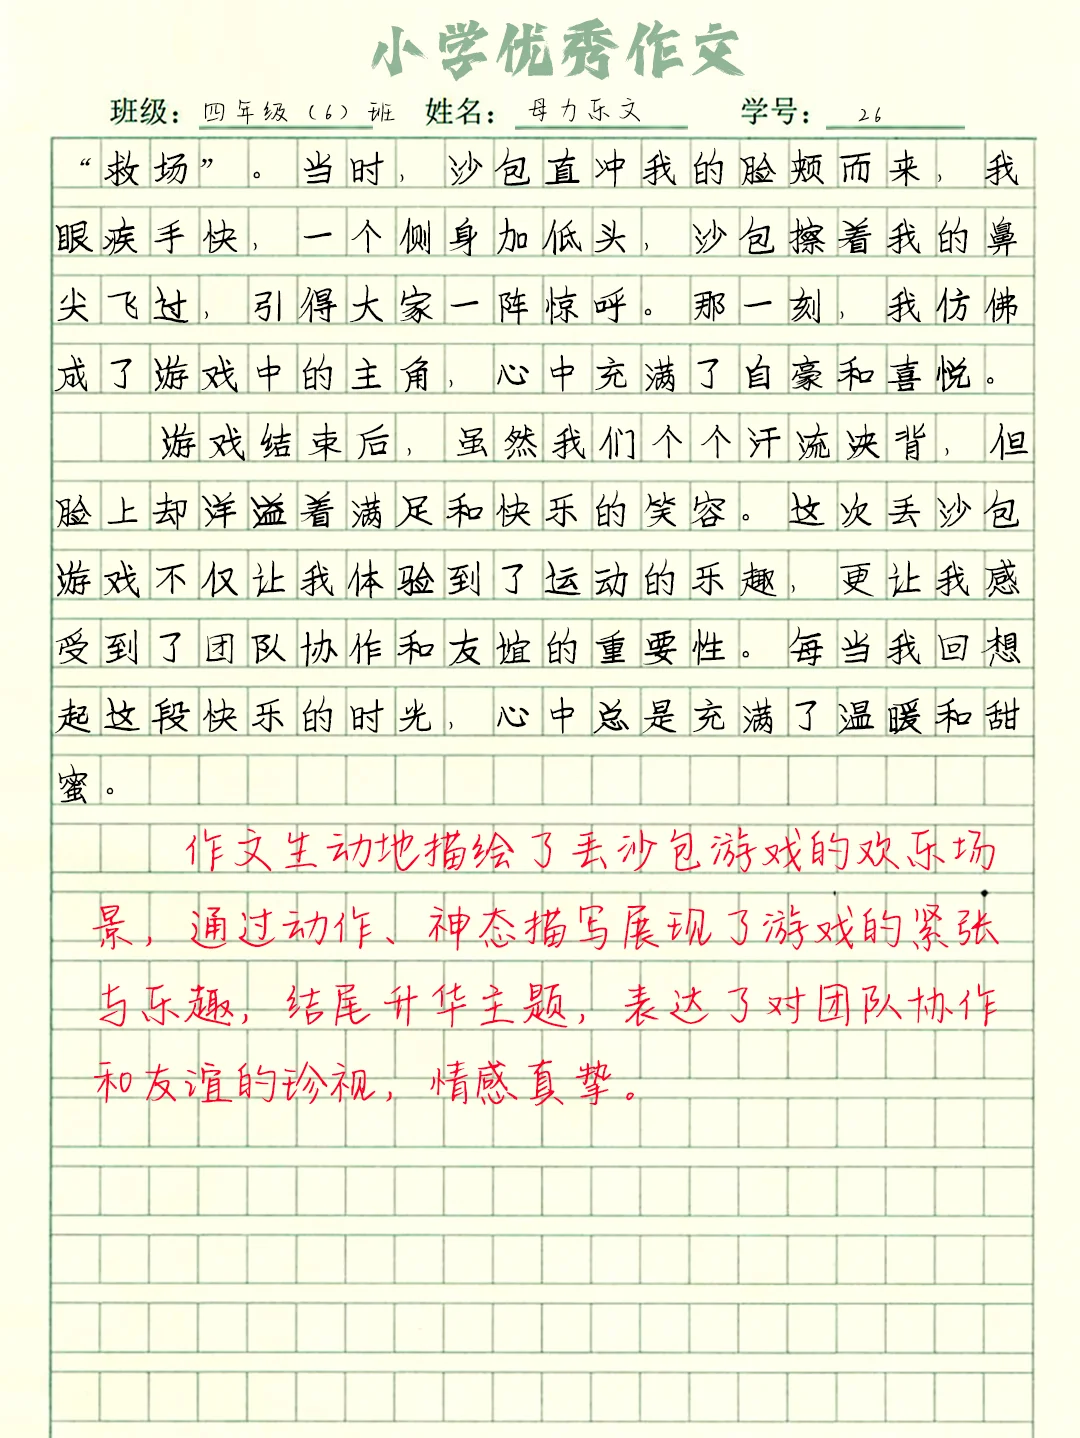 小学优秀作文
班级：四年级（6）班 姓名：母力乐文 学号：26
“救场”。当时，沙包直冲我的脸颊而来，我
眼疾手快，一个侧身加低头，沙包擦着我的鼻
尖飞过，引得大家一阵惊呼。那一刻，我仿佛
成了游戏中的主角，心中充满了自豪和喜悦。
游戏结束后，虽然我们个个汗流浃背，但
脸上却洋溢着满足和快乐的笑容。这次丢沙包
游戏不仅让我体验到了运动的乐趣，更让我感
受到了团队协作和友谊的重要性。每当我回想
起这段快乐的时光，心中总是充满了温暖和甜
蜜。
作文生动地描绘了丢沙包游戏的欢乐场
景，通过动作、神态描写展现了游戏的紧张
与乐趣，结尾升华主题，表达了对团队协作
和友谊的珍视，情感真挚。